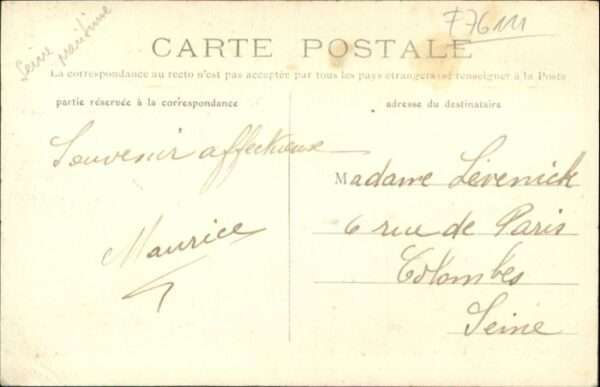 Seine
maritime
F76111
CARTE POSTALE
La correspondance au recto n'est pas acceptée par tous les pays étrangers (se renseigner à la Poste
partie réservée à la correspondance
adresse du destinataire
Souvenir affectueux
Maurice
Madame Lévenick
6 rue de Paris
Colombes
Seine